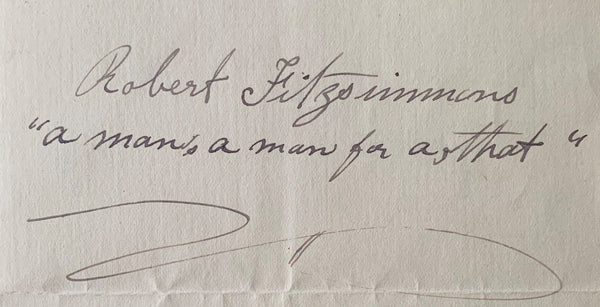 Robert Fitzsimmons
"a man's a man for a, that "